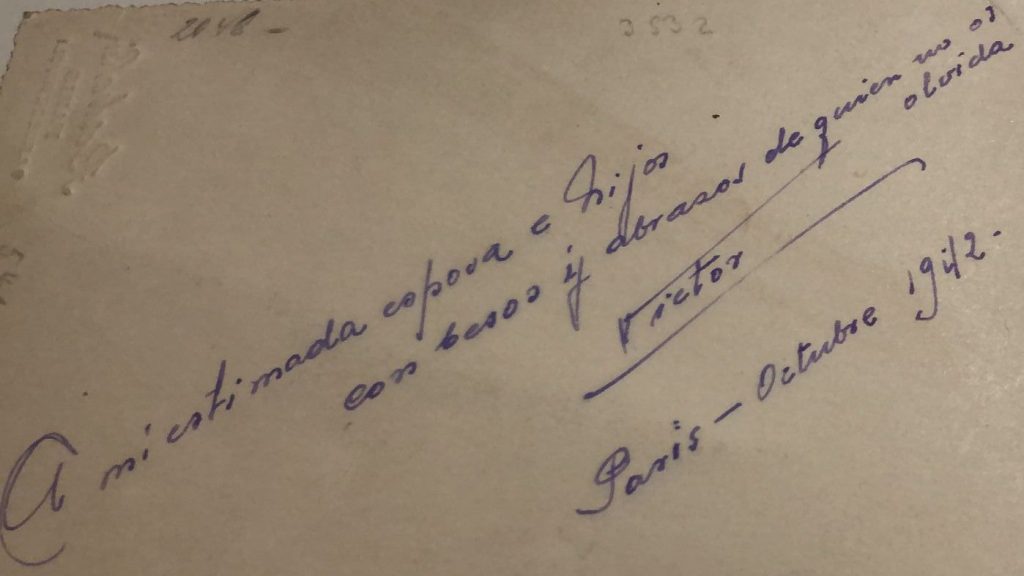 3532
A mi estimada esposa e hijos
con besos y abrazos de quien no os
olvida
Victor
Paris - Octubre 1942.